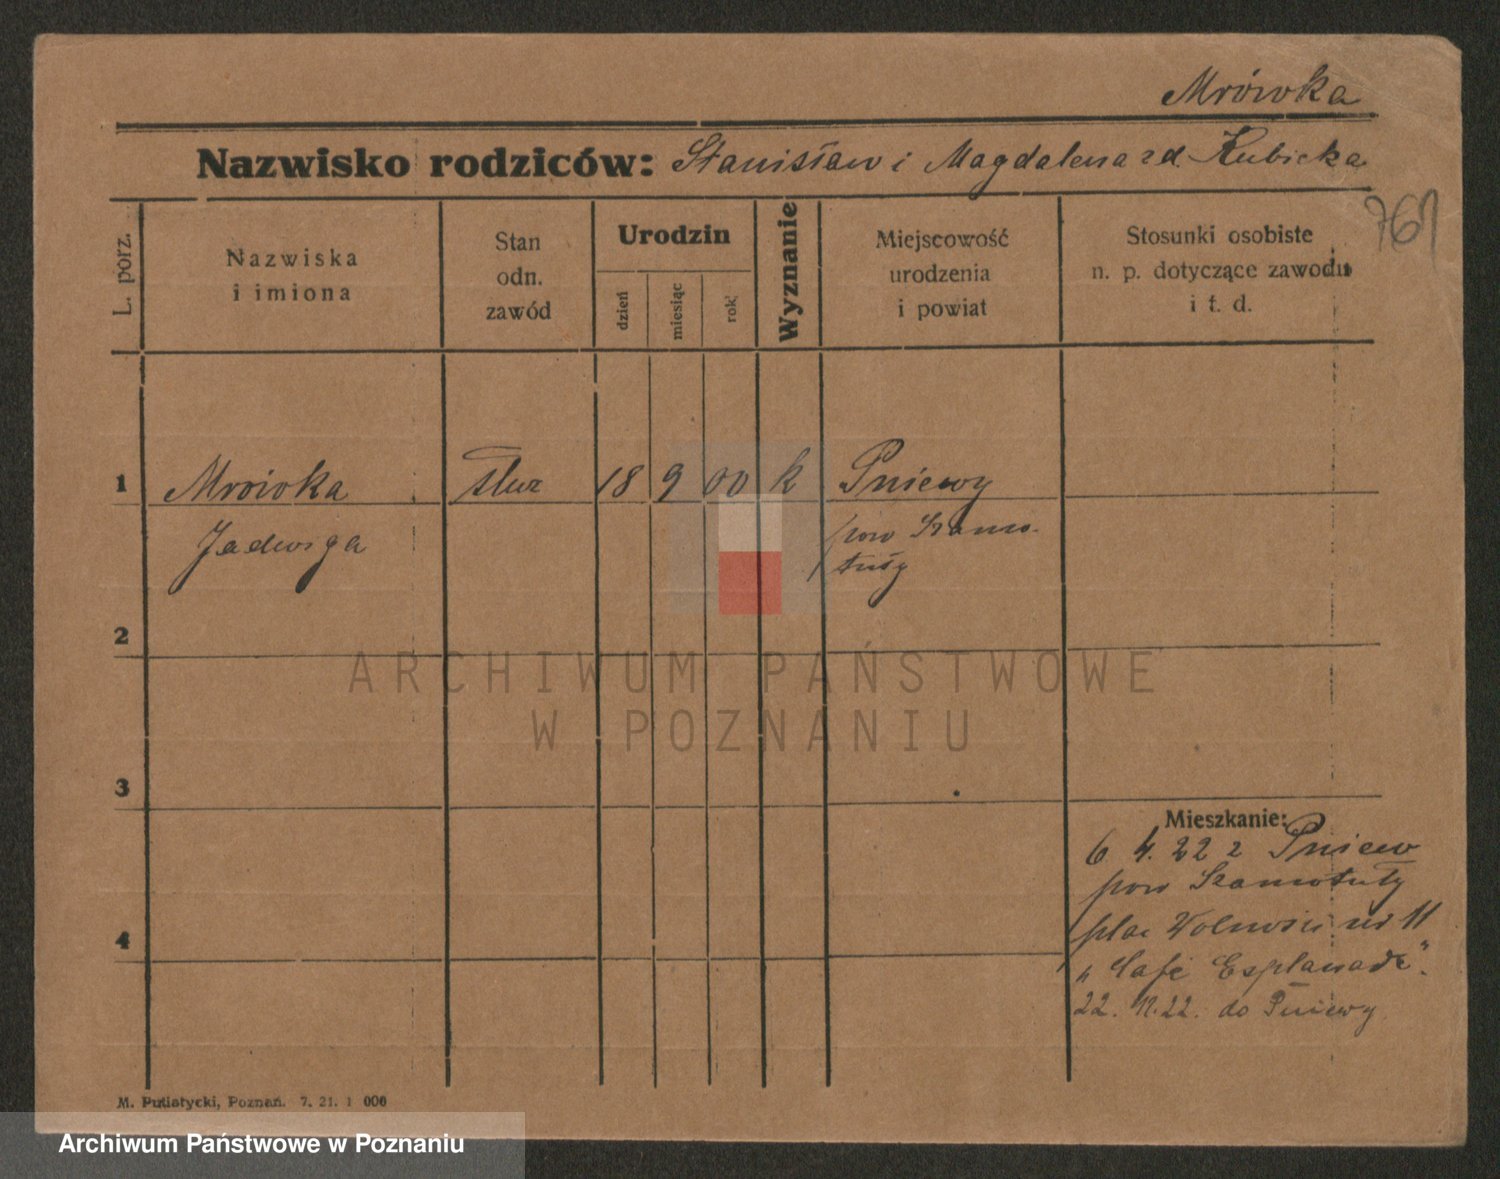 Mrówka
Nazwisko rodziców: Stanisław i Magdalena zd Kubicka
761
L. porz.
Nazwiska
i imiona
Stan
odn.
zawód
Urodzin
dzień
miesiąc
rok
Wyznanie
Miejscowość
urodzenia
i powiat
Stosunki osobiste
n. p. dotyczące zawodu
i t. d.
1 Mrówka służ 18 9 00 k Pniewy
Jadwiga pow Szamo-
tuły
2
3
4
Mieszkanie:
6 4. 22 z Pniew
pow Szamotuły
plac Wolności nr 11
„Café Esplanade”.
22. 11. 22. do Pniewy
M. Putiatycki, Poznań. 7. 21. 1 000
ARCHIWUM PAŃSTWOWE
W POZNANIU
Archiwum Państwowe w Poznaniu